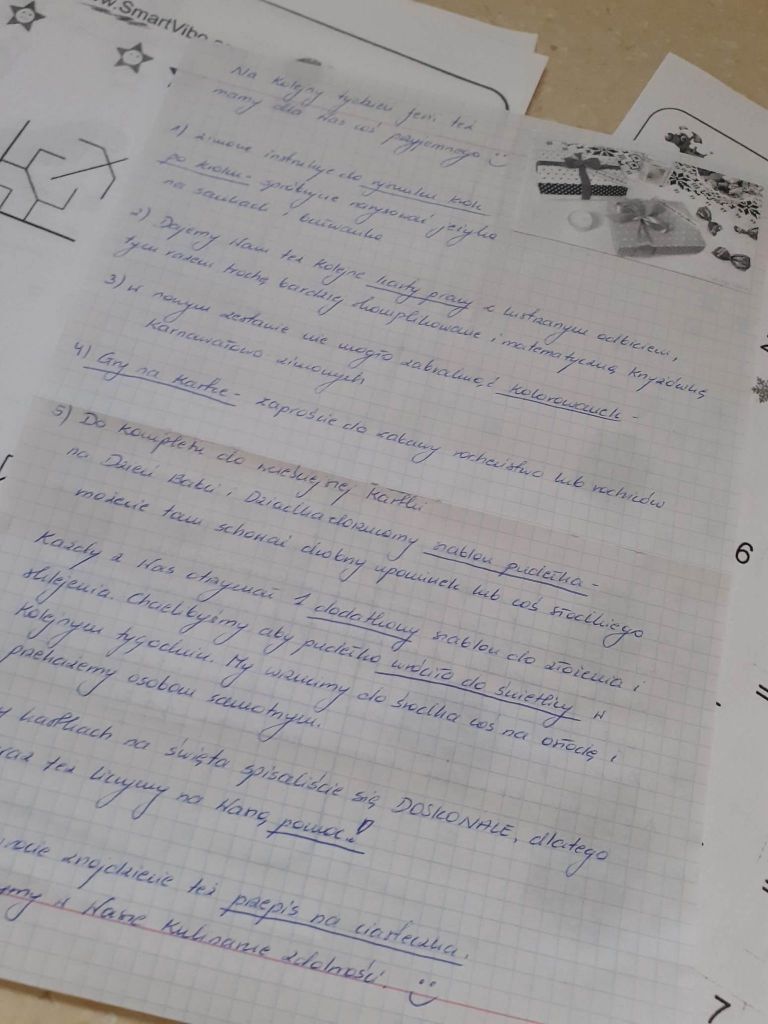 www.SmartVibo
Na kolejny tydzień ferii też
mamy dla Was coś przyjemnego
1) zimowe instrukcje do rysunku krok
po kroku - spróbujcie narysować jeżyka
na sankach i bałwanka
2) Dajemy Wam też kolejne karty pracy z lustrzanym odbiciem,
tym razem trochę bardziej skomplikowane i matematyczną krzyżówkę
3) w nowym zestawie nie mogło zabraknąć kolorowanek -
karnawałowo zimowych
4) Gry na kartce - zaproście do zabawy rodzeństwo lub rodziców
5) Do kompletu do kartki
na Dzień Babci i Dziadka dorzucamy szablon pudełka -
możecie tam schować drobny upominek lub coś słodkiego
Każdy z Was otrzymał 1 dodatkowy szablon do złożenia i
sklejenia. Chcielibyśmy aby pudełko wróciło do świetlicy w
kolejnym tygodniu. My wrzucimy do środka coś na osłodę i
przekażemy osobom samotnym.
kartkach na święta spisaliście się DOSKONALE, dlatego
też liczymy na Waszą pomoc!
znajdziecie też przepis na ciasteczka.
w Wasze kulinarne zdolności.
6
7